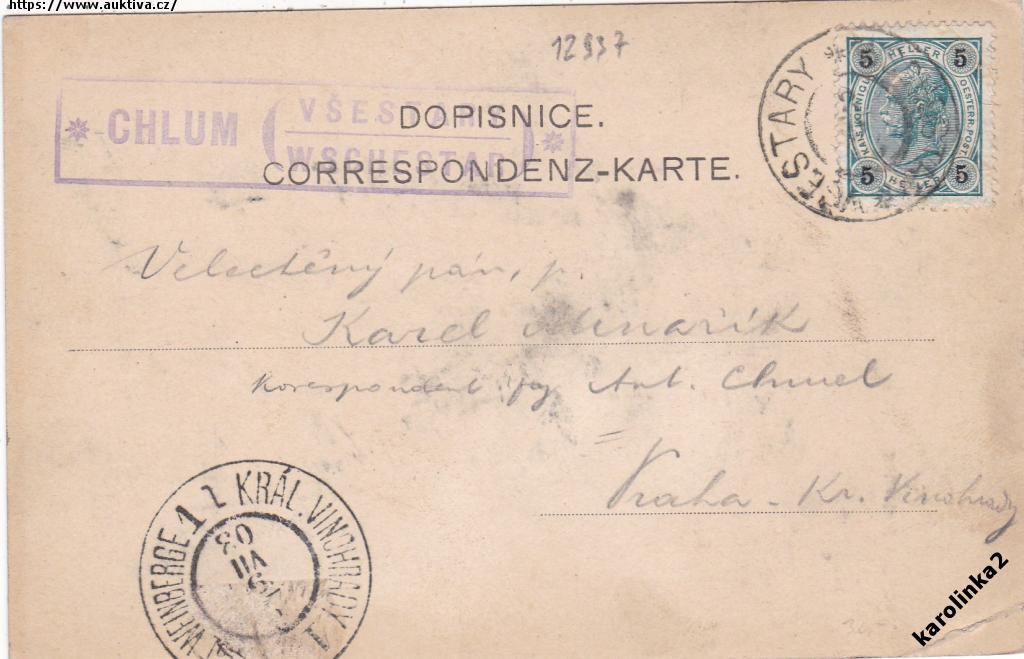 https://www.auktiva.cz/
12937
* CHLUM (VŠESTARY
WSCHESTAR) *
DOPISNICE.
CORRESPONDENZ-KARTE.
VŠESTARY
5 HELLER 5
KAIS. KOENIGL. OESTERR. POST
5 HELLER 5
Velectěný pán, p.
Karel Minařík
Korespondent Ant. Chmel
Praha - Kr. Vinohrady
KRÁL. VINOHRADY 1
WEINBERGE 1
VII
03
karolinka2